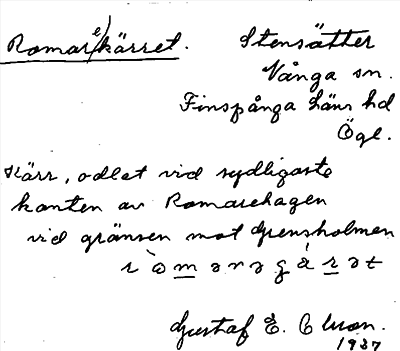 Romare(kärret. Stensätter
Vånga sn.
Finspånga läns hd
Ögl.
Kärr, odlet vid sydligaste
kanten av Romarehagen
vid gränsen mot Grensholmen
Gustaf E. Olson.
1937